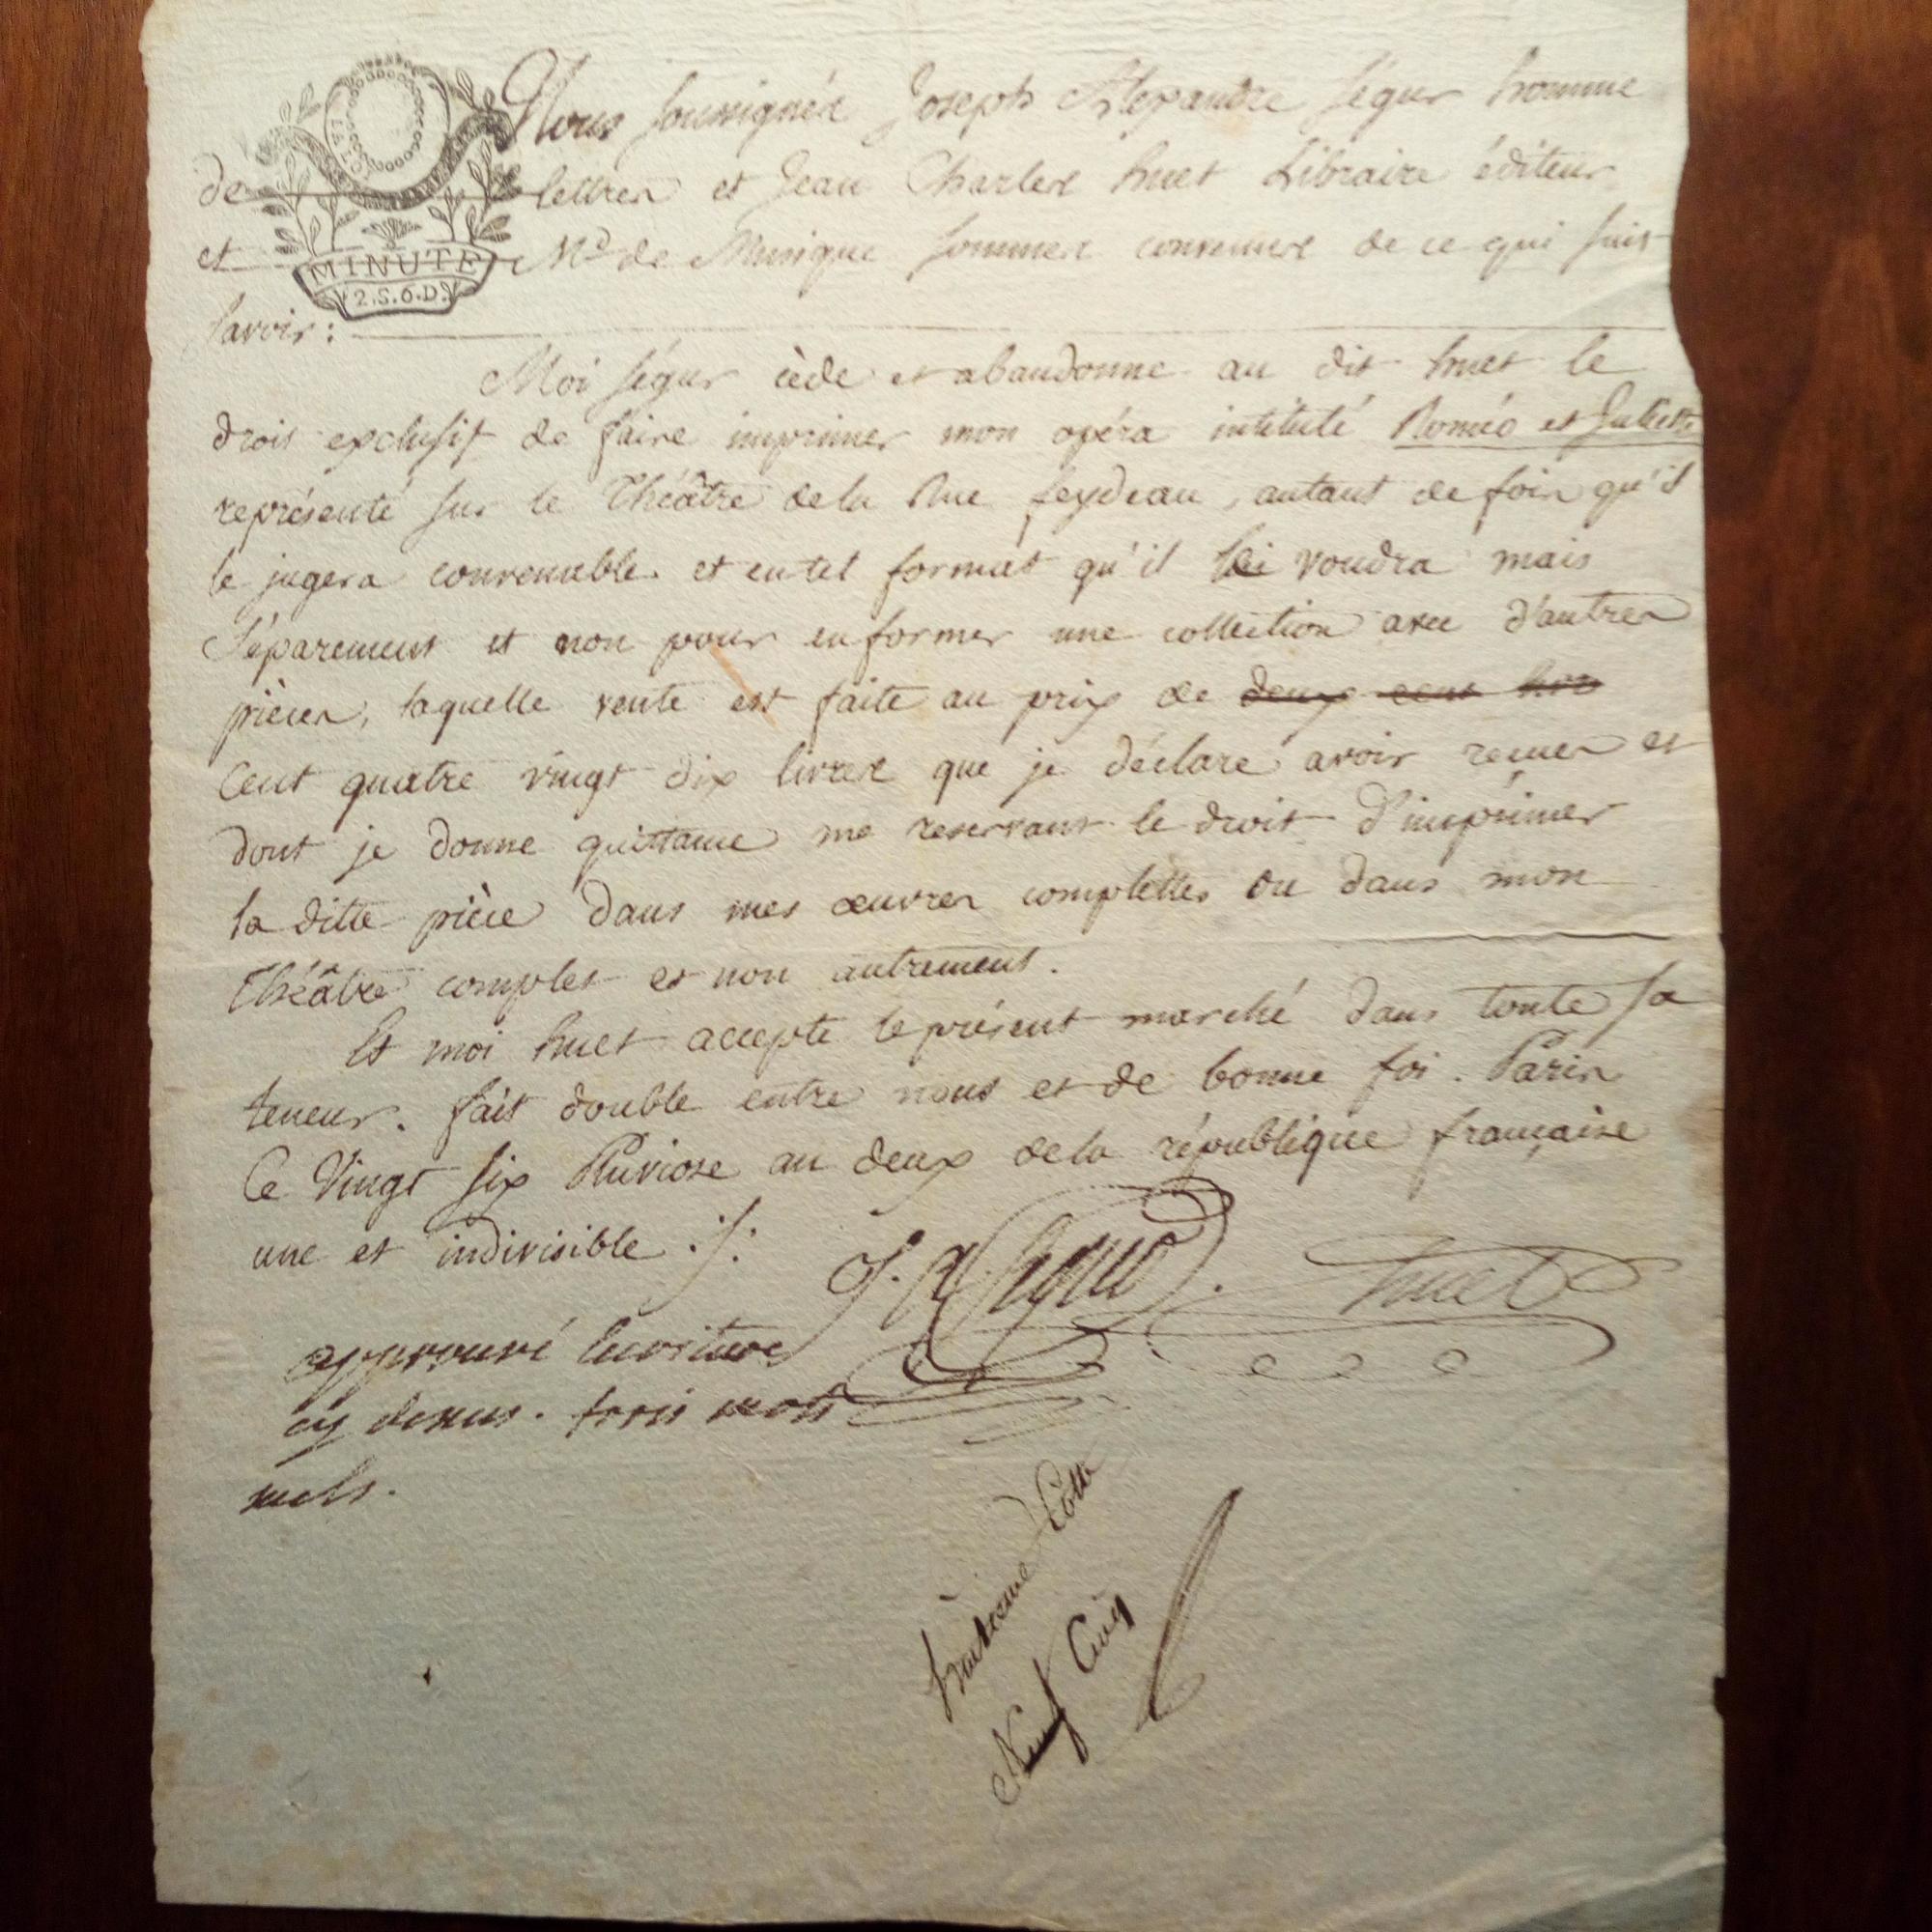 Nous soussignés Joseph Alexandre Ségur homme
de lettres et Jean Charles huet Libraire éditeur
et Md de Musique sommes convenus de ce qui suit
MINUTE
2.S.6.D.
savoir :
Moi ségur cède et abandonne au dit huet le
droit exclusif de faire imprimer mon opéra intitulé Roméo et Juliette
représenté sur le Théâtre de la Rue feydeau, autant de fois qu'il
le jugera convenable et en tel format qu'il voudra mais
Séparement et non pour en former une collection avec d'autres
pièces, laquelle vente est faite au prix de deux cent
Cent quatre vingt dix livres que je déclare avoir reçues et
dont je donne quittance me reservant le droit d'imprimer
la ditte pièce dans mes œuvres complettes ou dans mon
Théâtre complet et non autrement.
Et moi huet accepte le présent marché dans toute sa
teneur. fait double entre nous et de bonne foi. Paris
Ce Vingt six Pluviose an deux de la république française
une et indivisible ./.
J. A. Ségur huet
approuvé l'écriture
cy dessus. trois mots
nuls.